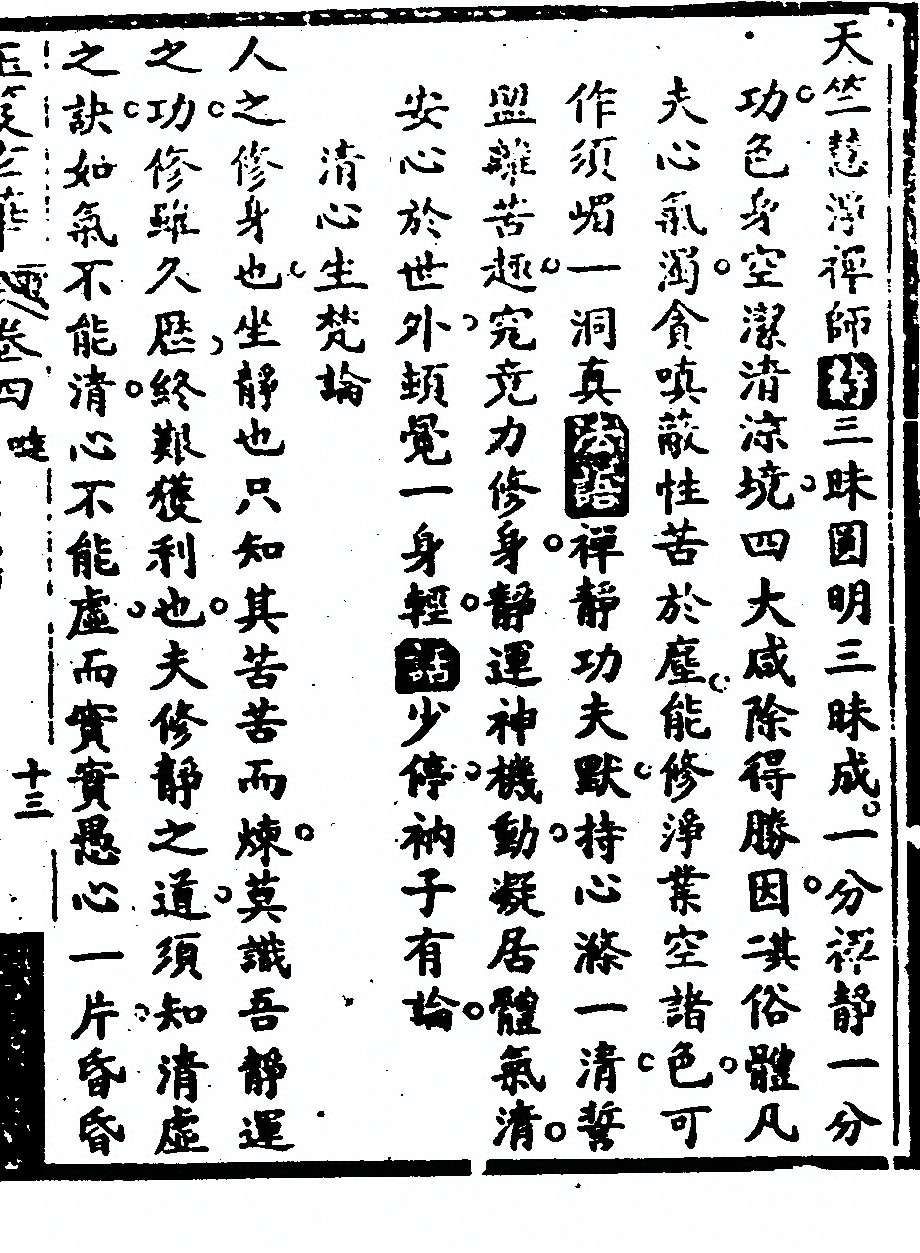 天竺慧淨禪師詩三昧圓明三昧成一分禪靜一分
功色身空潔清涼境四大咸除得勝因淇俗體凡
夫心氣濁貪嗔蔽性苦於塵能修淨業空諸色可
作須嵋一洞真 語禪靜功夫默持心滌一清誓
盟離苦趣究竟力修身靜運神機動凝居體氣清
安心於世外頓覺一身輕話少停衲子有論
清心生梵論
人之修身也坐靜也只知其苦苦而煉莫識吾靜運
之功修雖久歷終艱獲利也夫修靜之道須知清虛
之訣如氣不能清心不能虛而實實愚心一片昏昏
卷四
十三